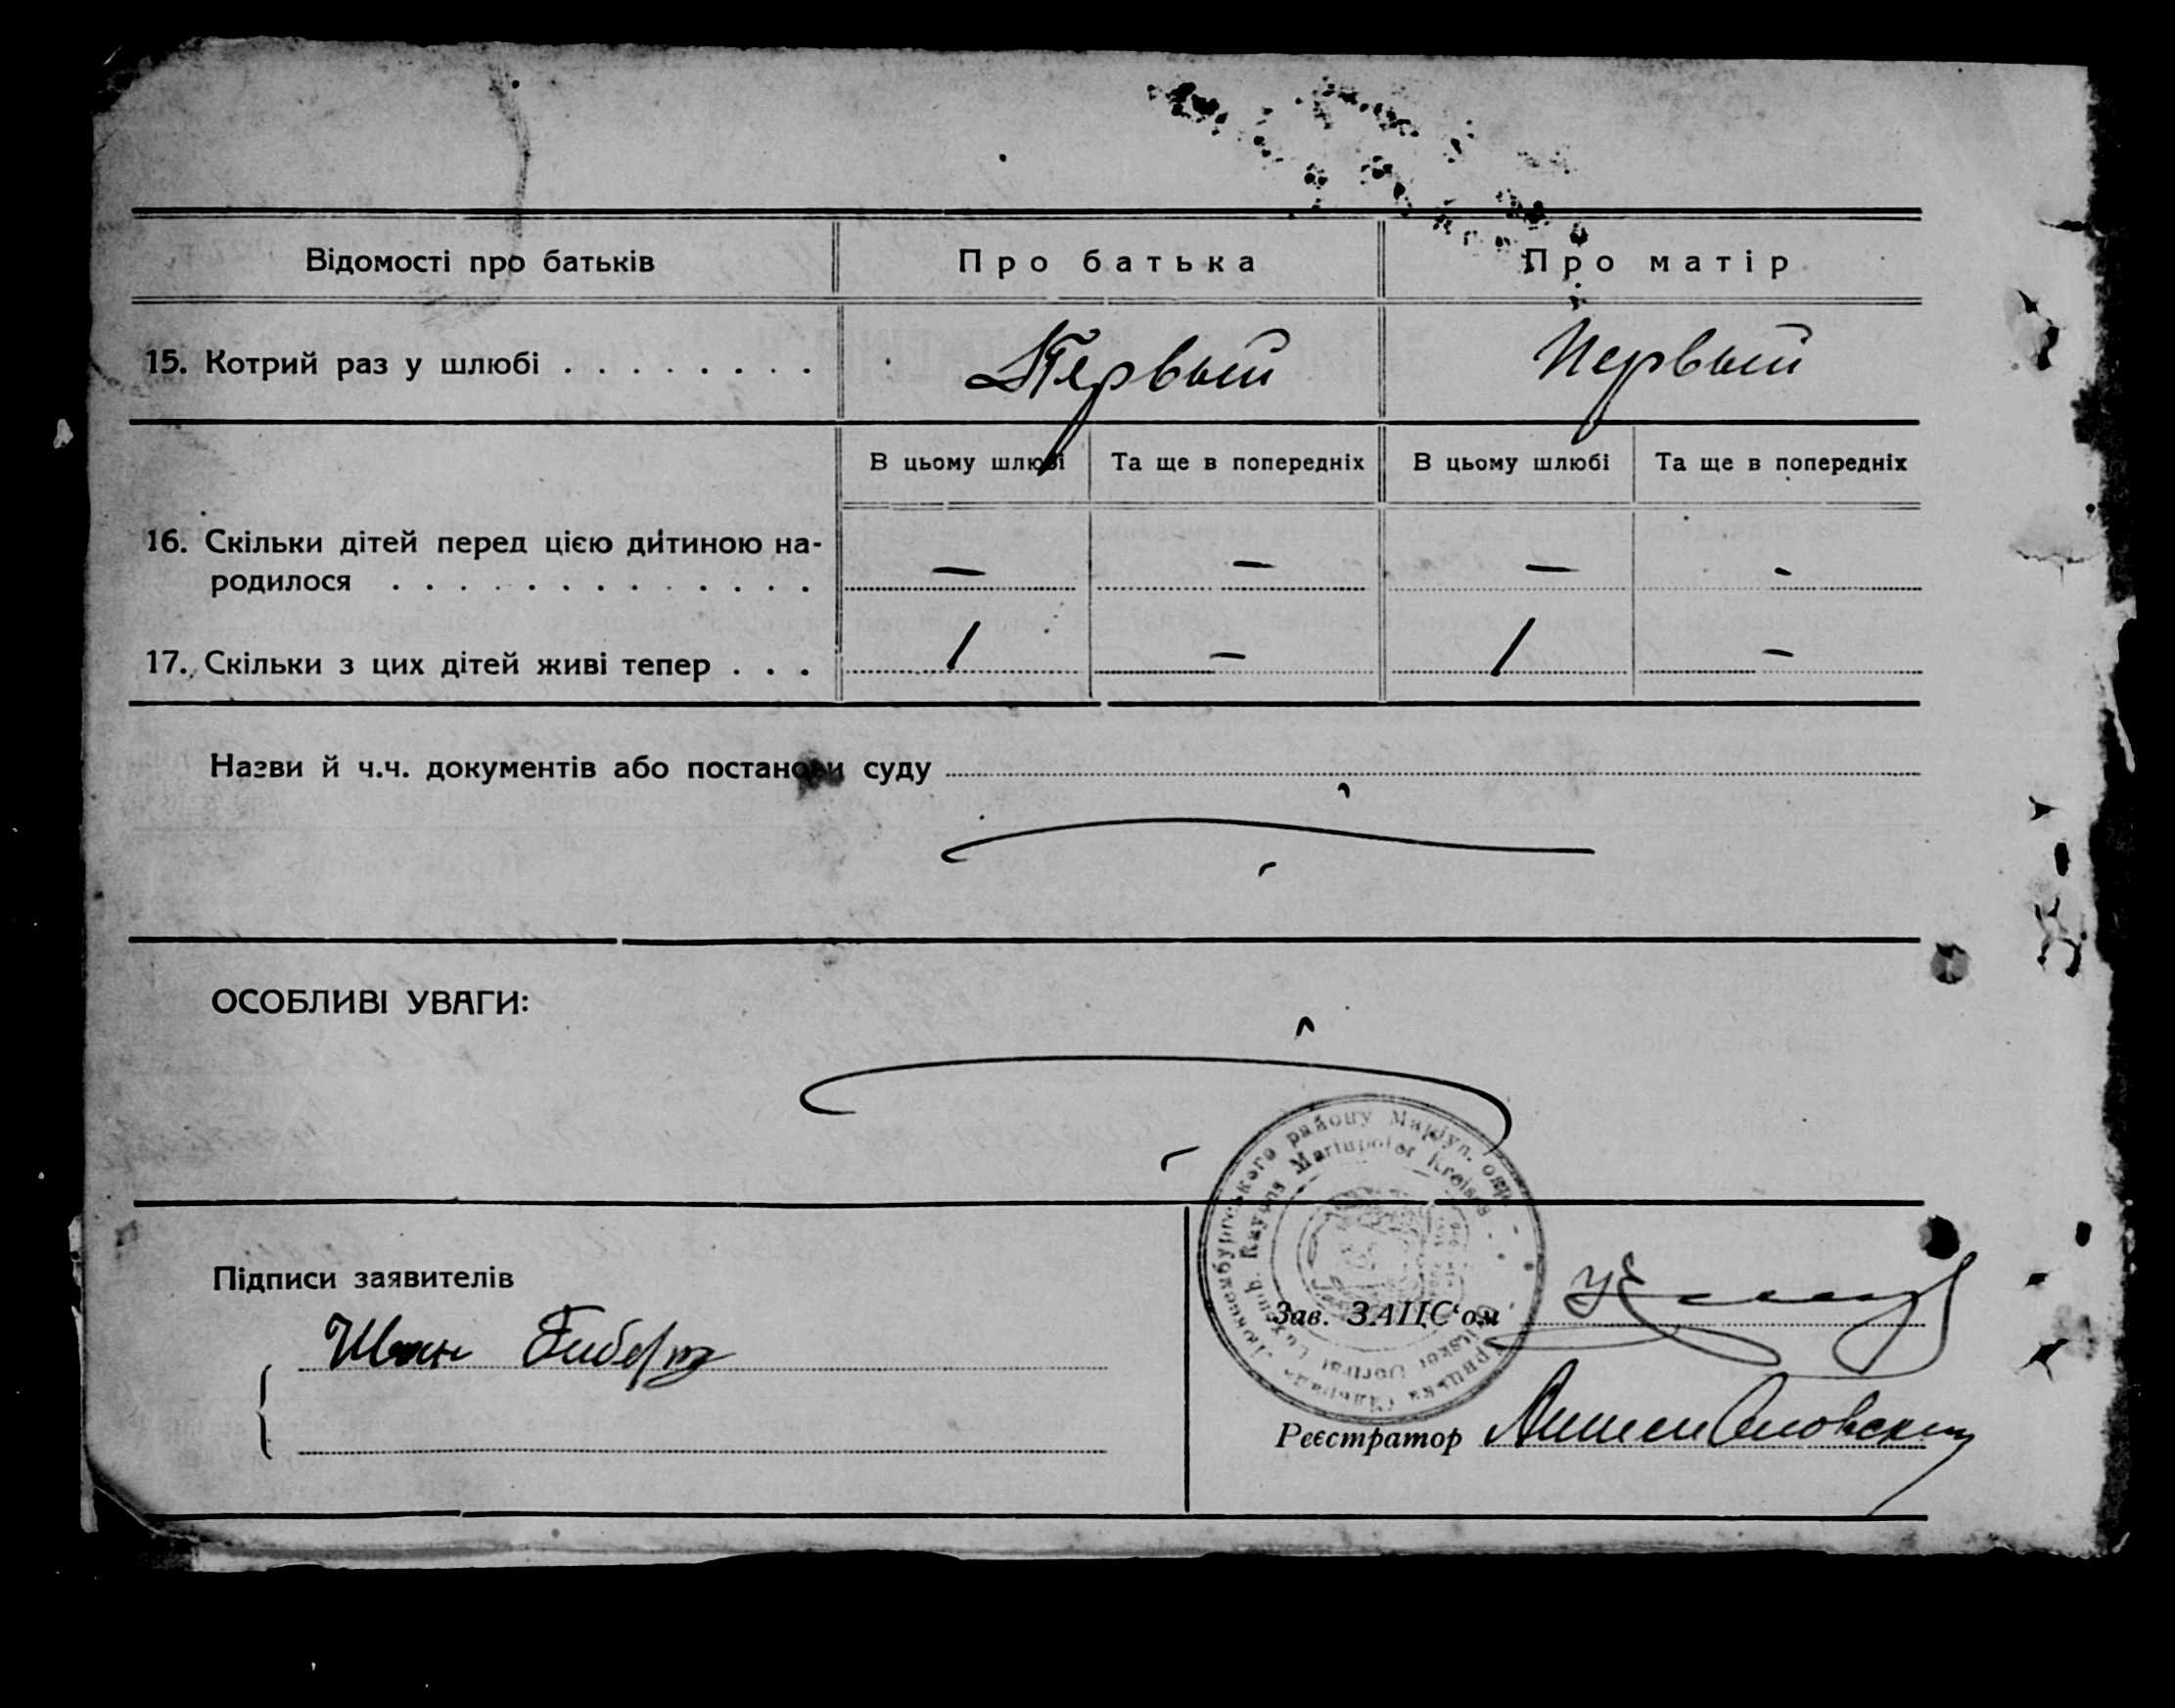 Відомості про батьків
Про батька
Про матір
15. Котрий раз у шлюбі . . . . . . . .
Первый
Первый
В цьому шлюбі
Та ще в попередніх
В цьому шлюбі
Та ще в попередніх
16. Скільки дітей перед цією дитиною на-
родилося . . . . . . . . . . . . . .
—
—
—
-
17. Скільки з цих дітей живі тепер . . .
1
—
1
—
Назви й ч.ч. документів або постанови суду
ОСОБЛИВІ УВАГИ:
Люксембургського району Маріуп. окр.
Luxemb. Rayons Mariupoler Kreises
Підписи заявителів
Иван Гиберт
Зав. ЗАЦС'ом
Реєстратор